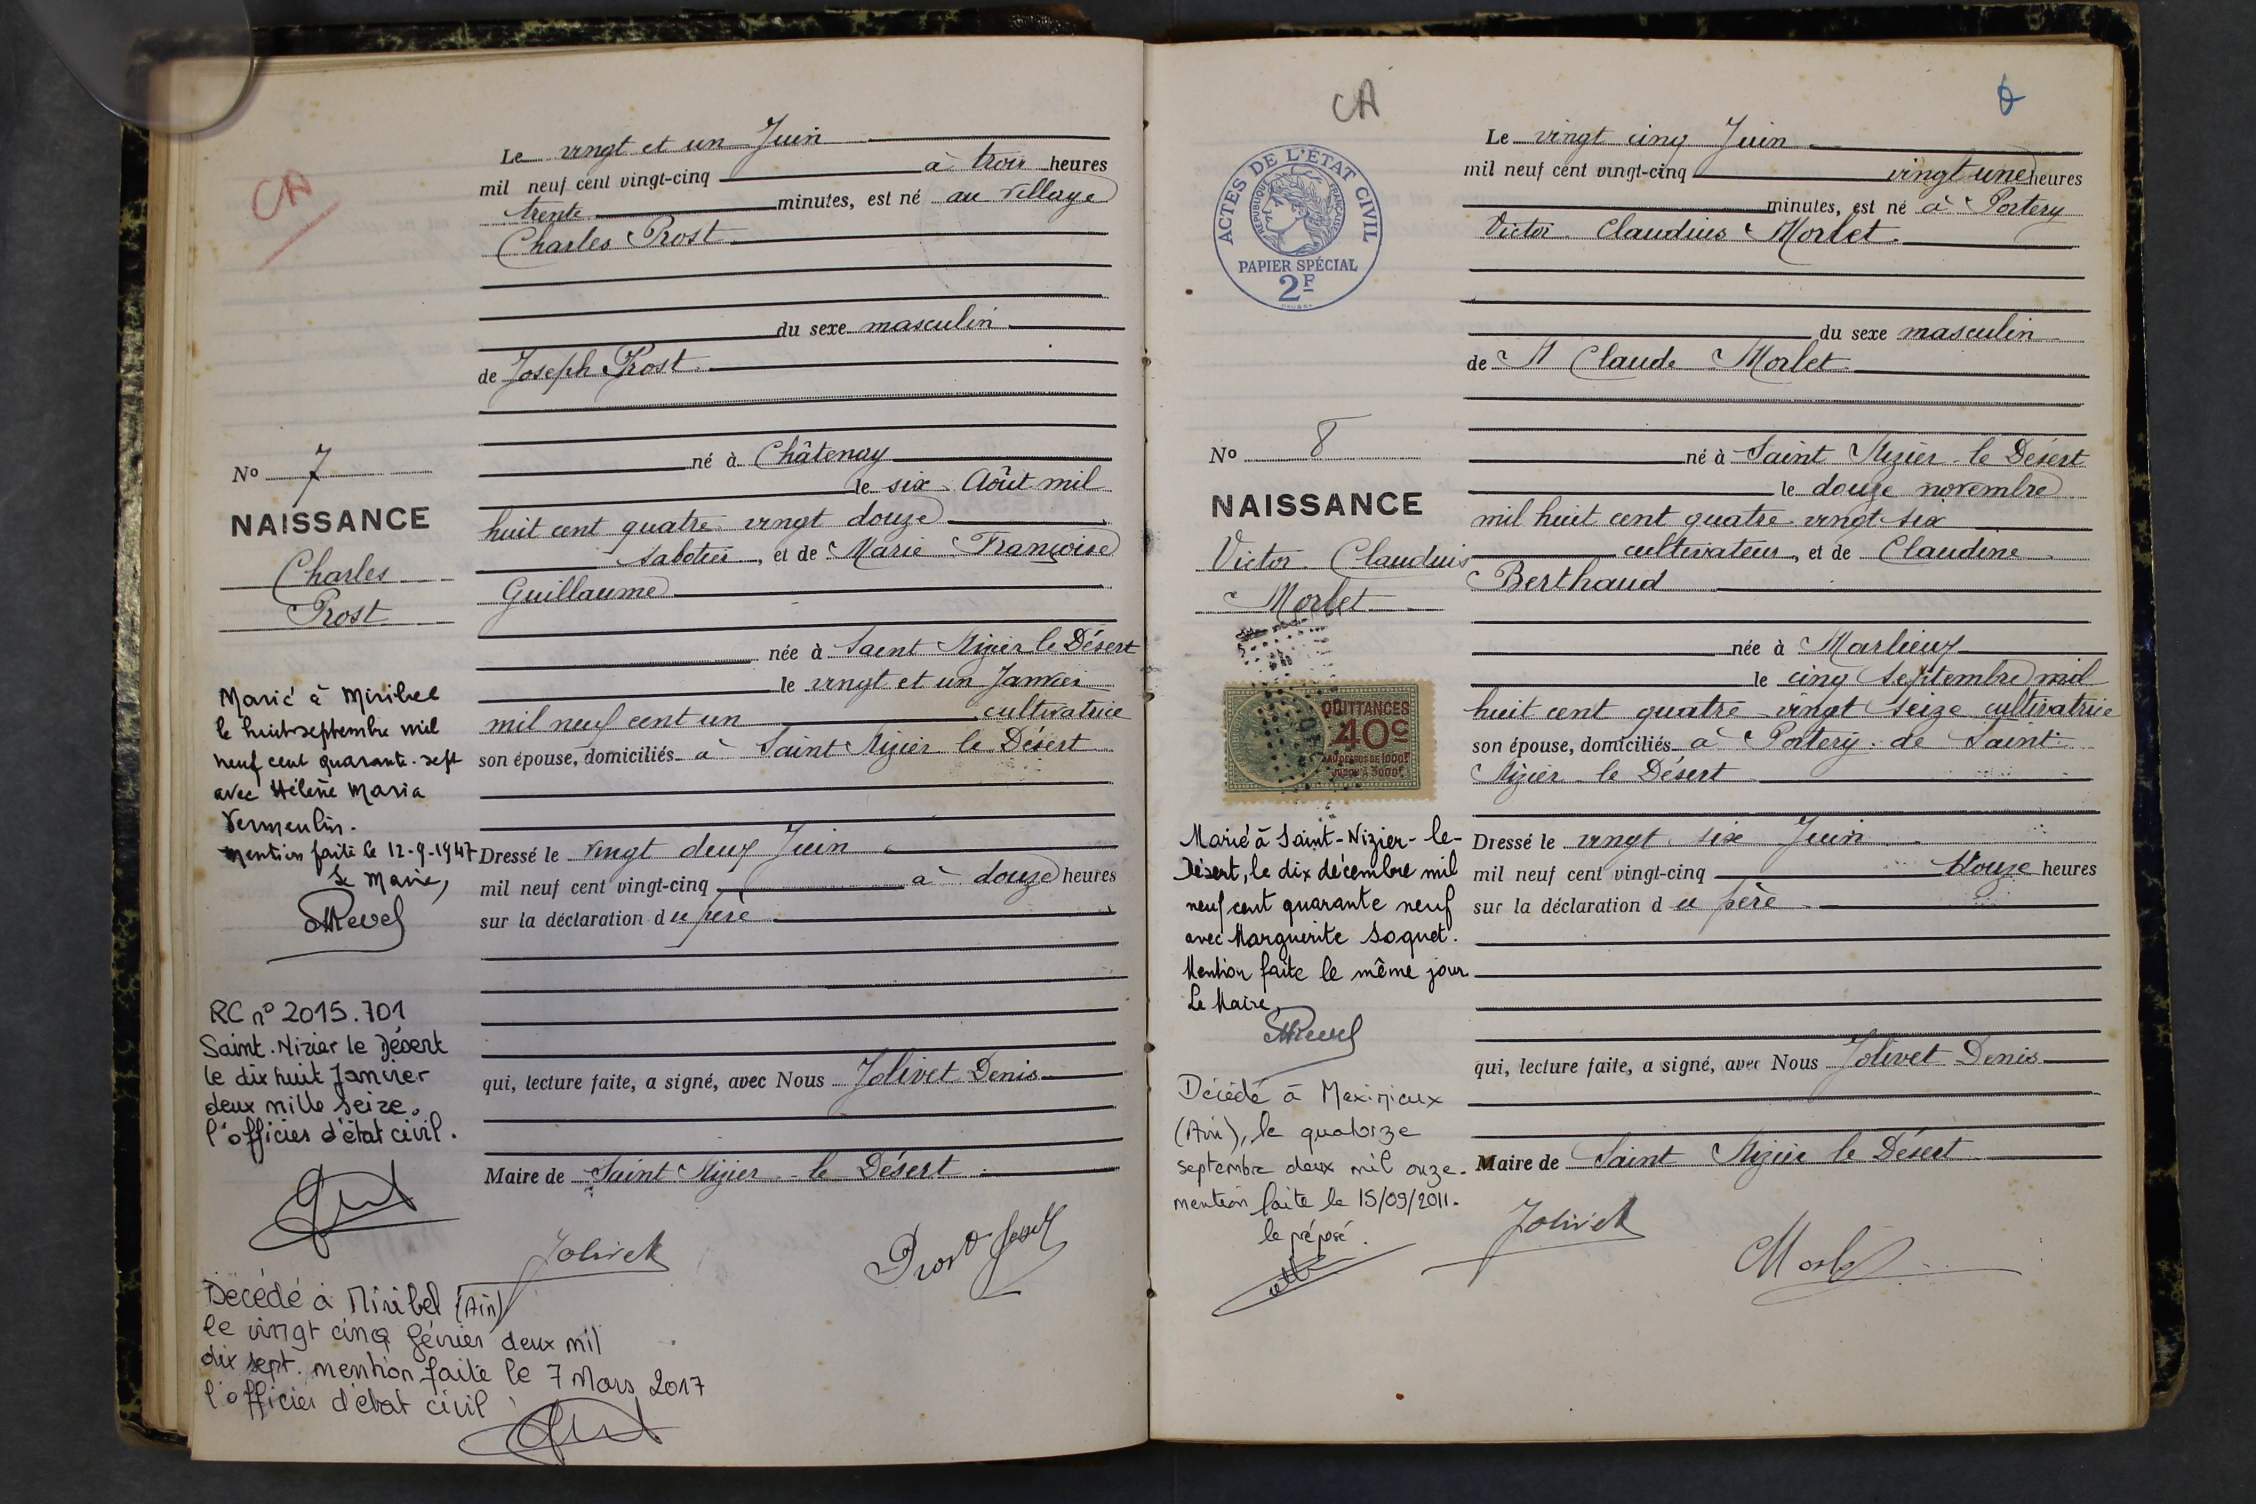 CA
Le vingt et un Juin
mil neuf cent vingt-cinq à trois heures
trente minutes, est né au village
Charles Prost
du sexe masculin
de Joseph Prost
né à Châtenay
le six Août mil
huit cent quatre vingt douze
sabotier, et de Marie Françoise
Guillaume
née à Saint Nizier le Désert
le vingt et un Janvier
mil neuf cent un cultivatrice
son épouse, domiciliés à Saint Nizier le Désert
Dressé le vingt deux Juin
mil neuf cent vingt-cinq à douze heures
sur la déclaration du père
qui, lecture faite, a signé, avec Nous Jolivet Denis
Maire de Saint Nizier le Désert
Jolivet
Prost Joseph
No 7
NAISSANCE
Charles
Prost
Marié à Miribel
le huit septembre mil
neuf cent quarante-sept
avec Hélène Maria
Vermeulin.
Mention faite le 12-9-1947
Le Maire,
RC n° 2015.701
Saint.Nizier le Désert
le dix huit Janvier
deux mille seize.
l'officier d'état civil.
Décédé à Miribel (Ain)
le vingt cinq février deux mil
dix sept. mention faite le 7 Mars 2017
l'officier d'état civil
CA
6
ACTES DE L'ETAT CIVIL
REPUBLIQUE FRANÇAISE
PAPIER SPÉCIAL
2F
Le vingt cinq Juin
mil neuf cent vingt-cinq vingt une heures
minutes, est né à Portery
Victor Claudius Morlet
du sexe masculin
de M Claude Morlet
né à Saint Nizier le Désert
le douze novembre
mil huit cent quatre vingt six
cultivateur, et de Claudine
Berthaud
née à Marlieux
le cinq Septembre mil
huit cent quatre vingt seize cultivatrice
son épouse, domiciliés à Portery de Saint
Nizier le Désert
Dressé le vingt six Juin
mil neuf cent vingt-cinq douze heures
sur la déclaration du père
qui, lecture faite, a signé, avec Nous Jolivet Denis
Maire de Saint Nizier le Désert
Jolivet
Morlet
No 8
NAISSANCE
Victor Claudius
Morlet
QUITTANCES
40c
AU DESSUS DE 1000F
JUSQU'À 3000F
Marié à Saint-Nizier-le-
Désert, le dix décembre mil
neuf cent quarante neuf
avec Marguerite Soquet.
Mention faite le même jour
Le Maire,
Décédé à Meximieux
(Ain), le quatorze
septembre deux mil onze.
mention faite le 15/09/2011.
le préposé.